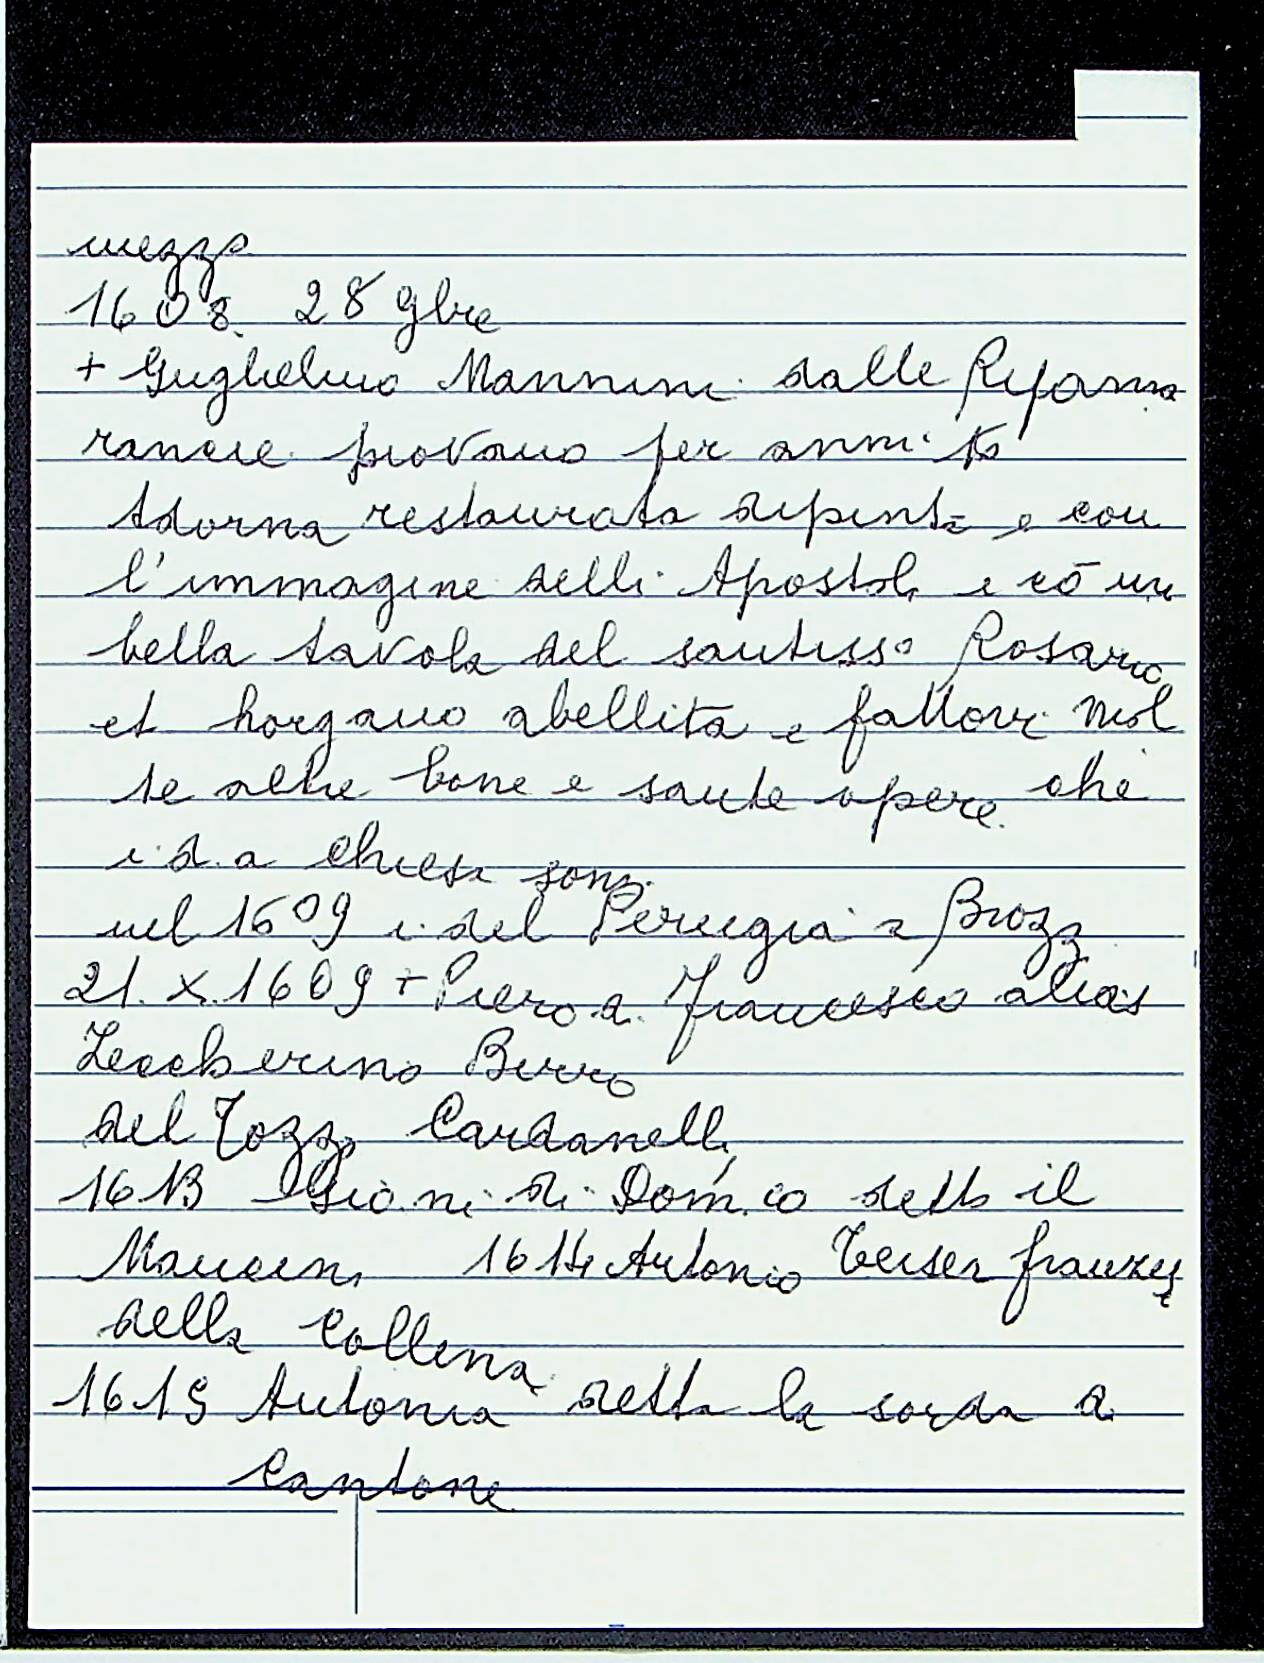 mezzo
1608. 28 9bre
+ Guglielmo Mannini dalle Riforma
rancie piovano per anni 16
Adorna restaurata dipinta e con
l'immagine delli Apostoli e cō un
bella tavola del santisso Rosario
et horgano abellita e fattovi mol
te altre bone e sante opere che
i d.a chiesa sono
nel 1609 i del Perugia a Brozzi
21. X. 1609 + Piero d. Francesco alias
Zeccherino Birro
del Tozzo Cardanelli
1613 Gio.ni di Dom.co detto il
Mancini 1614 Antonio
della Collina
1615 Antonia detta la sorda a
Cantone